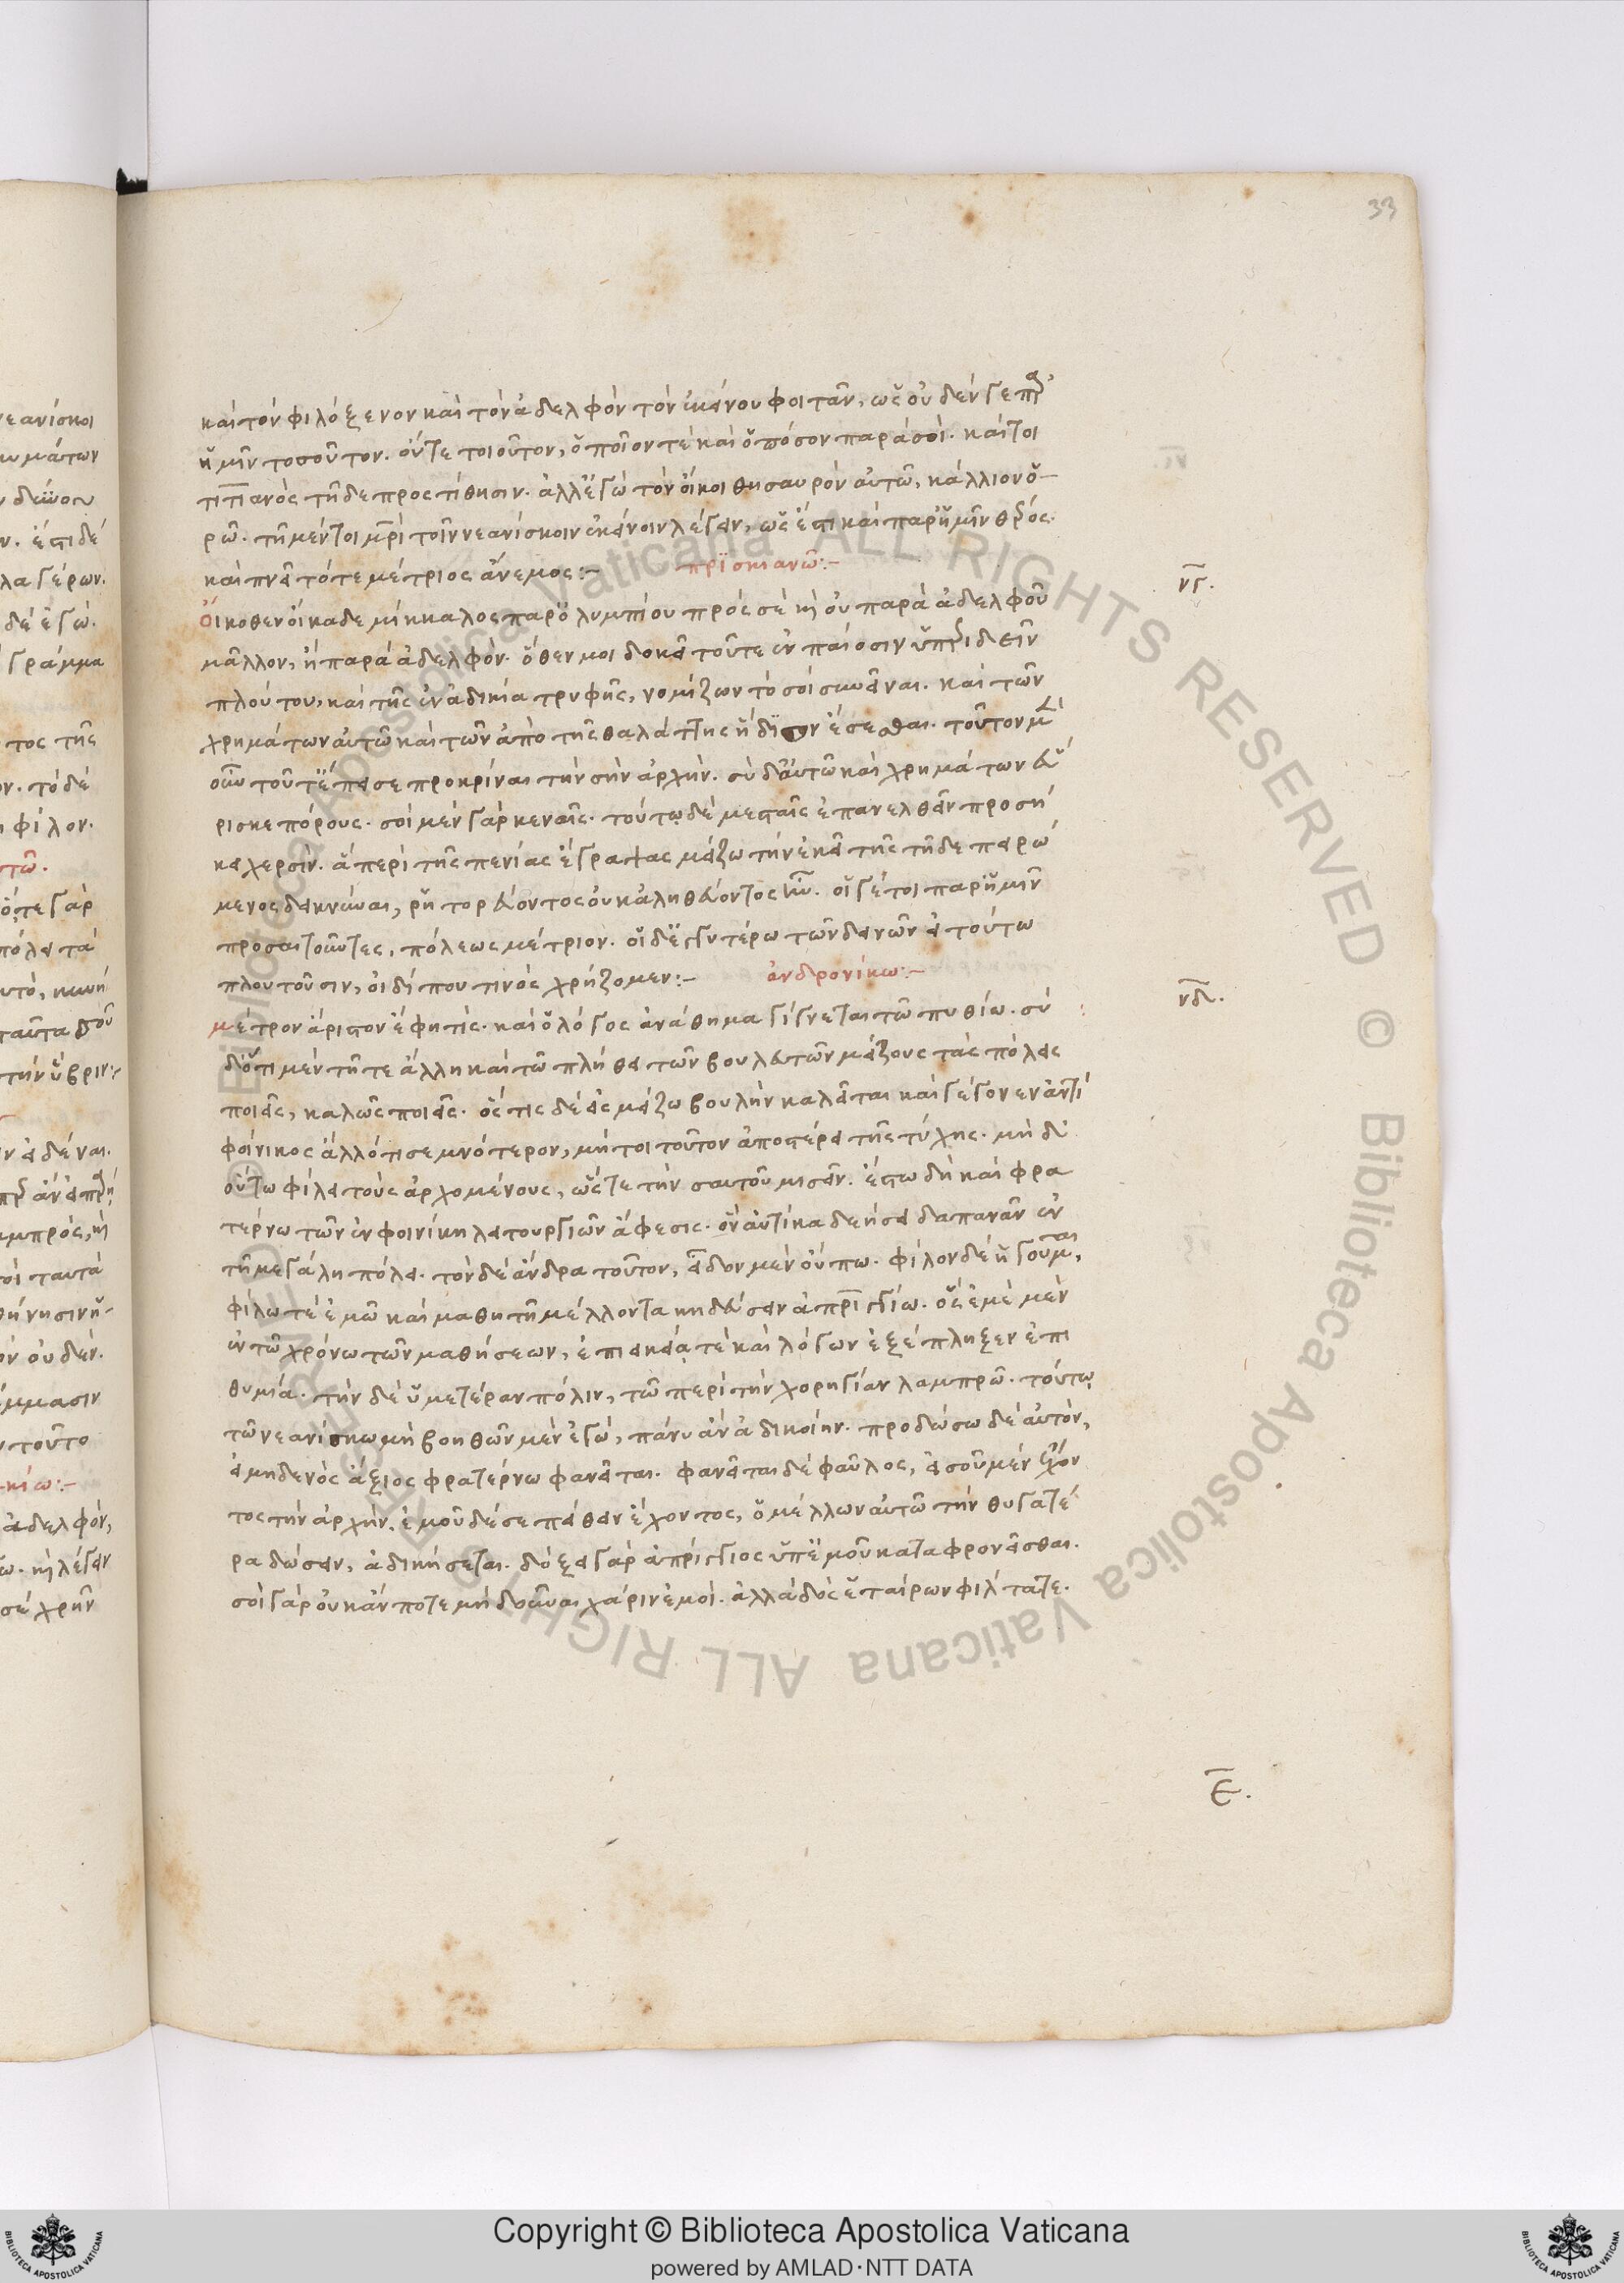 33
καὶ τὸν φιλόξενον καὶ τὸν ἀδελφὸν τὸν ἐκείνου φοιτᾶν, ὡς οὐδέν γε
ἡμῖν τοσοῦτον. οὔτε τοιοῦτον, ὁποῖόν τε καὶ ὁπόσον παρὰ σοί. καίτοι
τιτιανὸς τῇδε προστίθησιν. ἀλλ' ἐγὼ τὸν οἴκοι θησαυρὸν αὐτῶ, κάλλιον ὁ-
ρῶ. τῇ μέντοι μρὶ τοῖν νεανίσκοιν ἐκείνοιν λέγειν, ὡς ἔστι καὶ παρ' ἡμῖν θέρος.
καὶ πνεῖ τότε μέτριος ἄνεμος:-
πρισκιανῶ:-
νγ.
οἴκοθεν οἴκαδε μίκκαλος παρ' ὀλυμπίου πρὸς σὲ καὶ οὐ παρὰ ἀδελφοῦ
μᾶλλον, ἢ παρὰ ἀδελφόν. ὅθεν μοι δοκεῖ τοῦ τε ἐν παίοσιν ὑπεριδεῖν
πλούτου, καὶ τῆς ἐν ἀδικία τρυφῆς, νομίζων τὸ σοὶ συνεῖναι. καὶ τῶν
χρημάτων αὐτῶ καὶ τῶν ἀπὸ τῆς θαλάττης ἥδιον ἔσεσθαι. τοῦτον μὲν
οὖν τοῦτ' ἔπεισε προκρῖναι τὴν σὴν ἀρχήν. σὺ δ' αὐτῶ καὶ χρημάτων εὕ
ρισκε πόρους. σοὶ μὲν γὰρ κεναῖς. τούτῳ δὲ μεσταῖς ἐπανελθεῖν προσή
κει χερσίν. ἃ περὶ τῆς πενίας ἔγραψας μείζω τὴν ἐκεῖ τῆς τῇδε πειρώ
μενος δεικνύναι, ῥητορεύοντος οὐκ ἀληθεύοντος ἦν. οἵ γέ τοι παρ' ἡμῖν
προσαιτοῦντες, πόλεως μέτριον. οἱ δ' ἐγγυτέρω τῶν δεινῶν εἰ τούτω
πλουτοῦσιν, οἰδίπου τινὸς χρήζομεν:-
ἀνδρονίκω:-
νδ.
μέτρον ἄριστον ἔφη τίς. καὶ ὁ λόγος ἀνάθημα γίγνεται τῶ πυθίω. σὺ
δ' ὅτι μὲν τῇ τε ἄλλη καὶ τῶ πλήθει τῶν βουλευτῶν μείζους τὰς πόλεις
ποιεῖς, καλῶς ποιεῖς. ὅστις δὲ εἰς μείζω βουλὴν καλεῖται καὶ γέγονεν ἀντὶ
φοίνικος ἄλλό τι σεμνότερον, μή τοι τοῦτον ἀποστέρει τῆς τύχης. μὴ δ'
οὕτω φίλει τοὺς ἀρχομένους, ὥστε τὴν σαυτοῦ μισεῖν. ἔστω δὴ καὶ φρα
τέρνω τῶν ἐν φοινίκη λειτουργιῶν ἄφεσις. ὃν αὐτίκα δεήσει δαπανᾶν ἐν
τῇ μεγάλη πόλει. τὸν δὲ ἄνδρα τοῦτον, εἶδον μὲν οὔπω. φίλον δὲ ἡγοῦμαι,
φίλω τὲ ἐμῶ καὶ μαθητῇ μέλλοντα κηδεύσειν ἀπριγγίω. ὃς ἐμὲ μὲν
ἐν τῶ χρόνω τῶν μαθήσεων, ἐπιεικείᾳ τὲ καὶ λόγων ἐξέπληξεν ἐπι
θυμία. τὴν δὲ ὑμετέραν πόλιν, τῶ περὶ τὴν χορηγίαν λαμπρῶ. τούτῳ
τῶ νεανίσκω μὴ βοηθῶν μὲν ἐγὼ, πάνυ ἂν ἀδικοίην. προδώσω δὲ αὐτόν,
εἰ μηδενὸς ἄξιος φρατέρνω φανεῖται. φανεῖται δὲ φαῦλος, εἰ σοῦ μὲν ἔχον
τος τὴν ἀρχήν, ἐμοῦ δέ σε πείθειν ἔχοντος, ὁ μέλλων αὐτῶ τὴν θυγατέ
ρα δώσειν, ἀδικήσεται. δόξει γὰρ ἀπρίγγιος ὑπ' ἐμοῦ καταφρονεῖσθαι.
σοὶ γὰρ οὐκ ἄν ποτε μὴ δοῦναι χάριν ἐμοί. ἀλλὰ δὸς ἑταίρων φίλτατε.
ε.
Copyright © Biblioteca Apostolica Vaticana
powered by AMLAD·NTT DATA